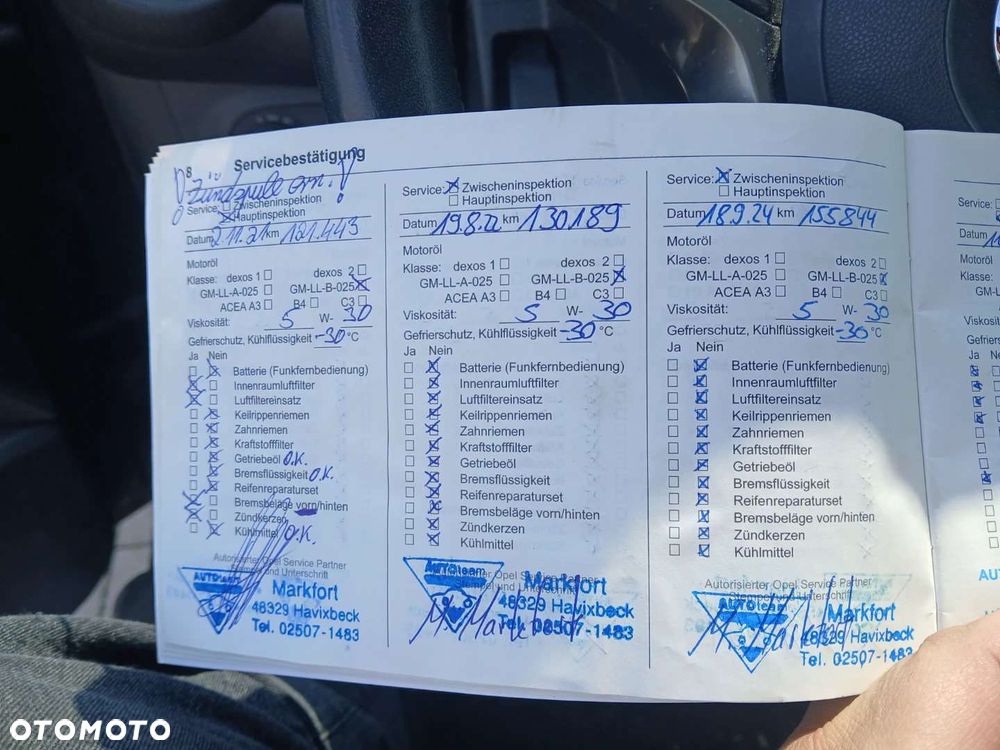 8 Servicebestätigung
! Zündspule ern. !
Service: Zwischeninspektion
Hauptinspektion
Datum 2.11.21 km 121.443
Motoröl
Klasse: dexos 1 dexos 2
GM-LL-A-025 GM-LL-B-025
ACEA A3 B4 C3
Viskosität: 5 W- 30
Gefrierschutz, Kühlflüssigkeit -30 °C
Ja Nein
Batterie (Funkfernbedienung)
Innenraumluftfilter
Luftfiltereinsatz
Keilrippenriemen
Zahnriemen
Kraftstofffilter
Getriebeöl O.K.
Bremsflüssigkeit O.K.
Reifenreparaturset
Bremsbeläge vorn/hinten
Zündkerzen
Kühlmittel O.K.
Autorisierter Opel Service Partner
Stempel und Unterschrift
AUTOteam
Markfort
48329 Havixbeck
Tel. 02507-1483
Service: Zwischeninspektion
Hauptinspektion
Datum 19.8.22 km 130189
Motoröl
Klasse: dexos 1 dexos 2
GM-LL-A-025 GM-LL-B-025
ACEA A3 B4 C3
Viskosität: 5 W- 30
Gefrierschutz, Kühlflüssigkeit -30 °C
Ja Nein
Batterie (Funkfernbedienung)
Innenraumluftfilter
Luftfiltereinsatz
Keilrippenriemen
Zahnriemen
Kraftstofffilter
Getriebeöl
Bremsflüssigkeit
Reifenreparaturset
Bremsbeläge vorn/hinten
Zündkerzen
Kühlmittel
Autorisierter Opel Service Partner
Stempel und Unterschrift
AUTOteam
Markfort
48329 Havixbeck
Tel. 02507-1483
Service: Zwischeninspektion
Hauptinspektion
Datum 18.9.24 km 155844
Motoröl
Klasse: dexos 1 dexos 2
GM-LL-A-025 GM-LL-B-025
ACEA A3 B4 C3
Viskosität: 5 W- 30
Gefrierschutz, Kühlflüssigkeit -30 °C
Ja Nein
Batterie (Funkfernbedienung)
Innenraumluftfilter
Luftfiltereinsatz
Keilrippenriemen
Zahnriemen
Kraftstofffilter
Getriebeöl
Bremsflüssigkeit
Reifenreparaturset
Bremsbeläge vorn/hinten
Zündkerzen
Kühlmittel
Autorisierter Opel Service Partner
Stempel und Unterschrift
AUTOteam
Markfort
48329 Havixbeck
Tel. 02507-1483
Service:
Motoröl
Klasse:
Ja Nein
OTOMOTO